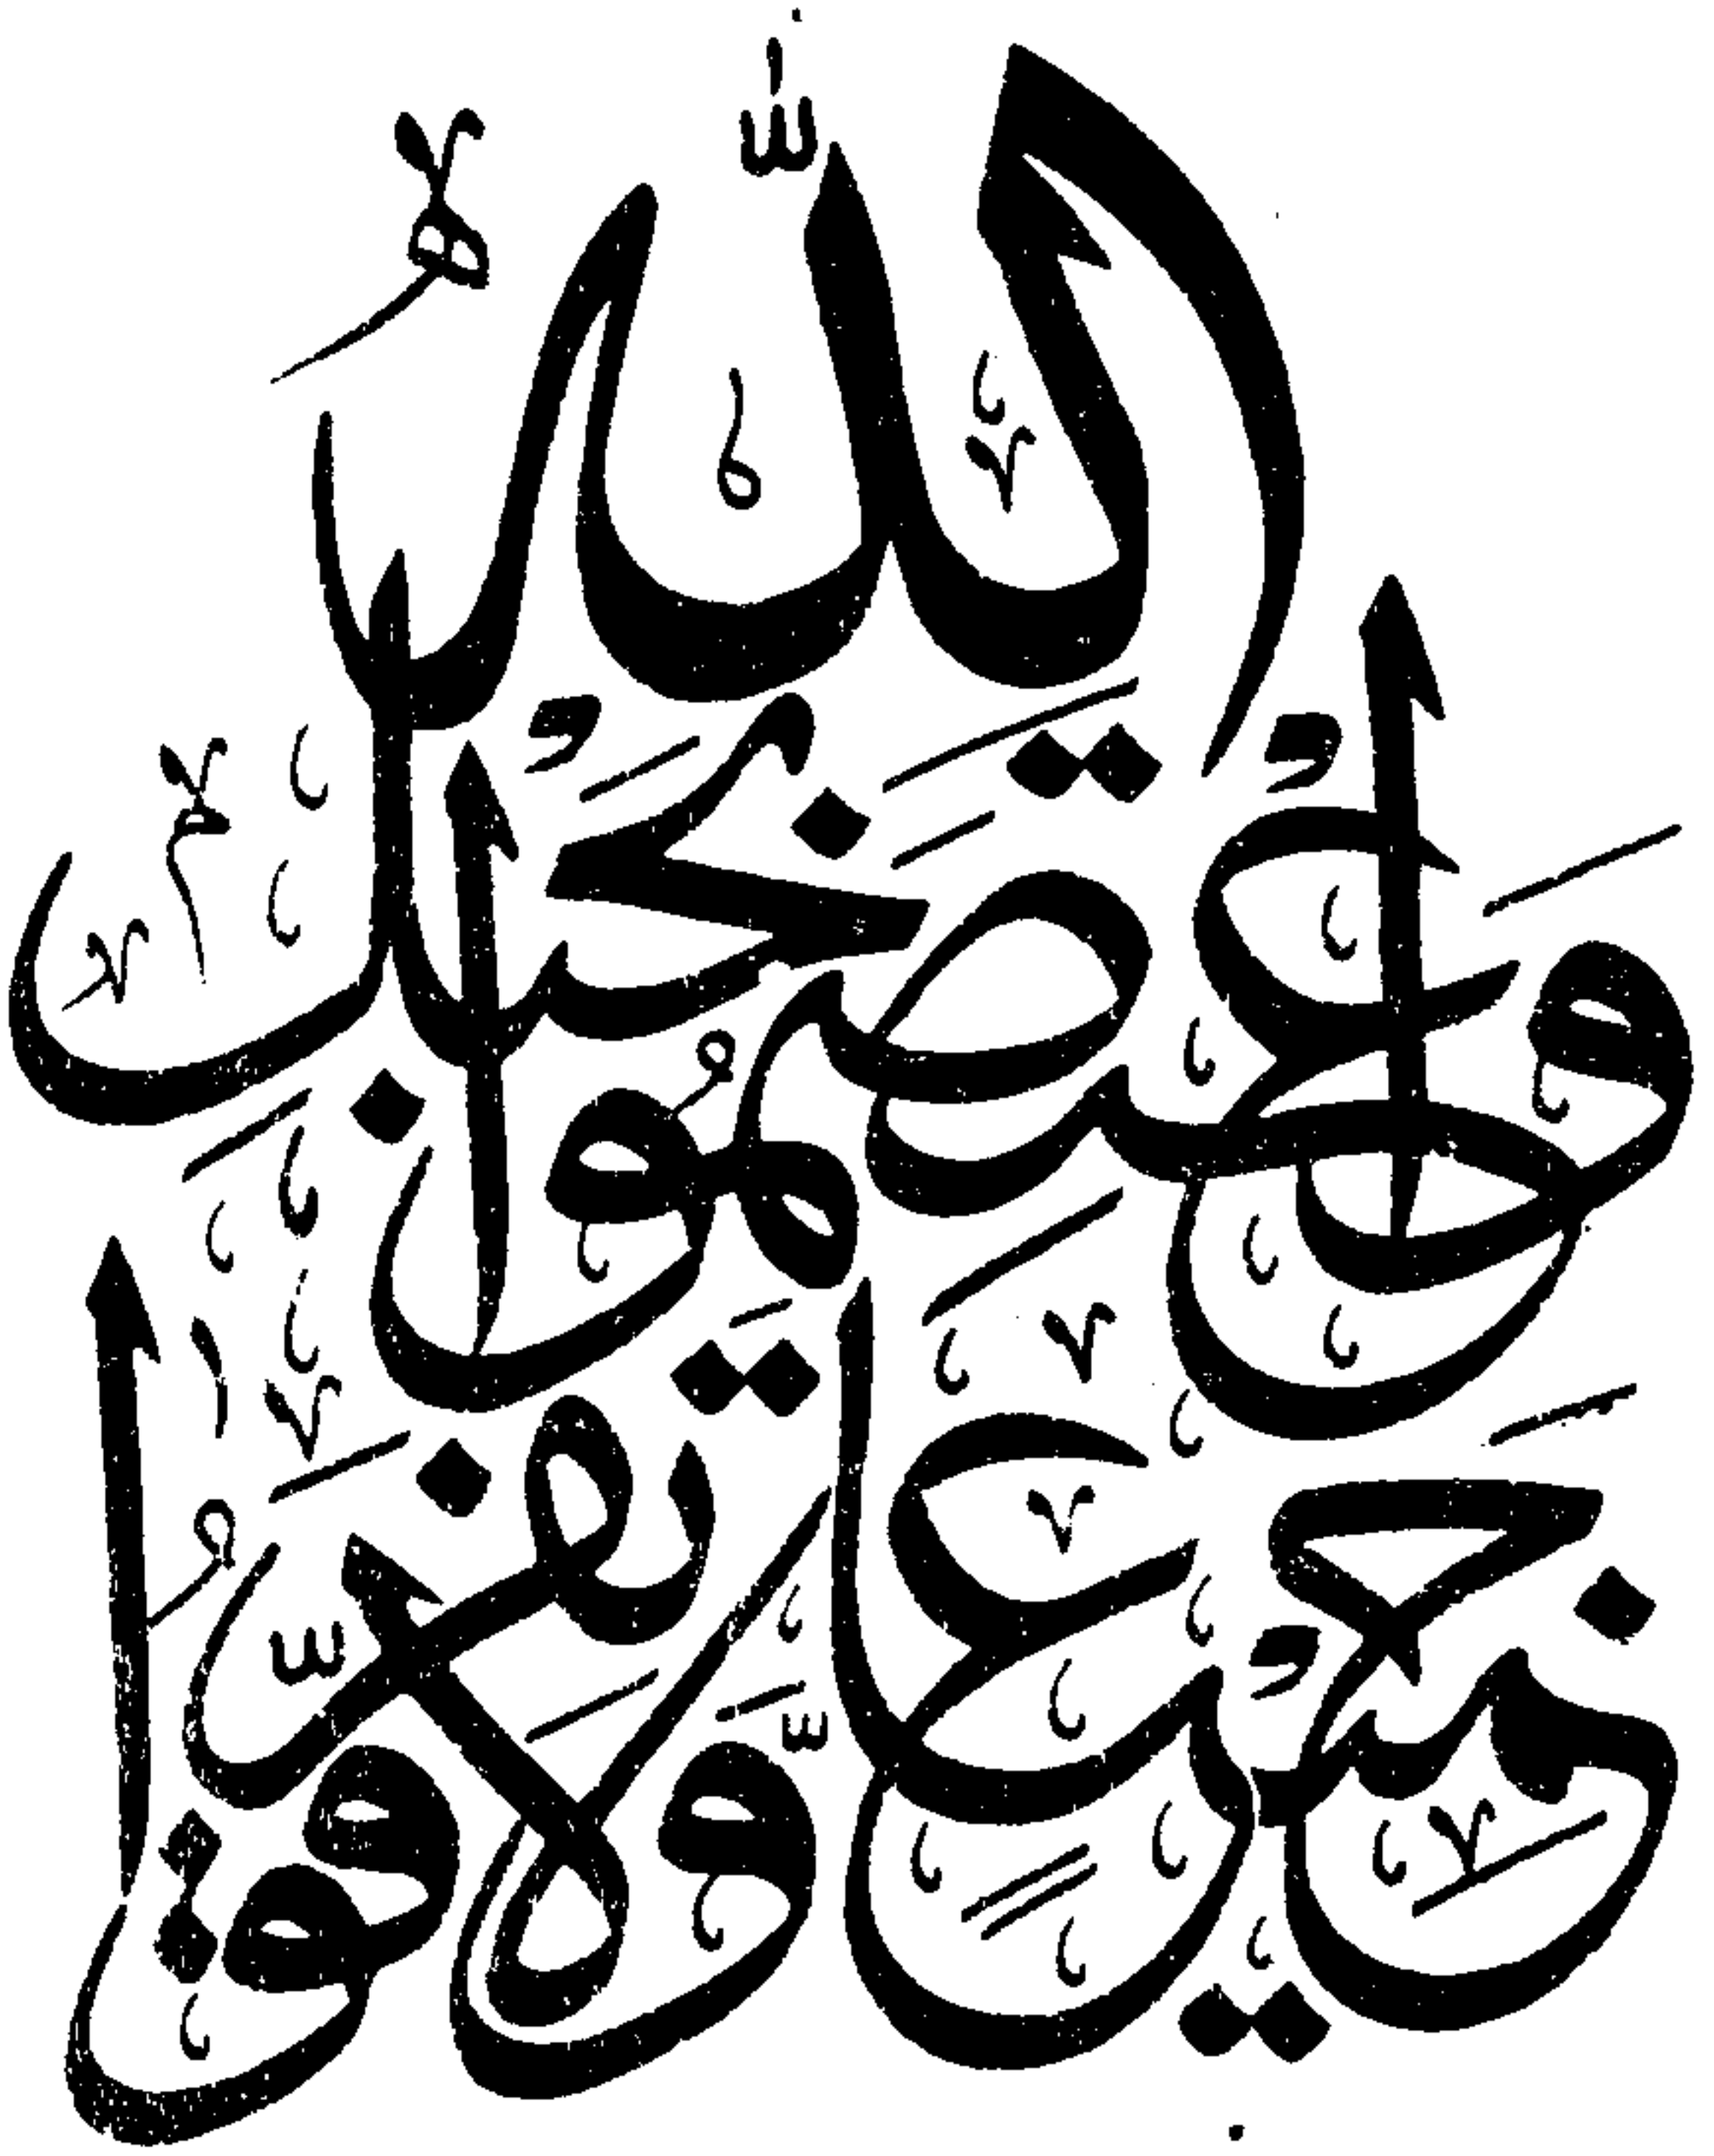 واعتصموا بحبل الله
جميعا ولا تفرقوا